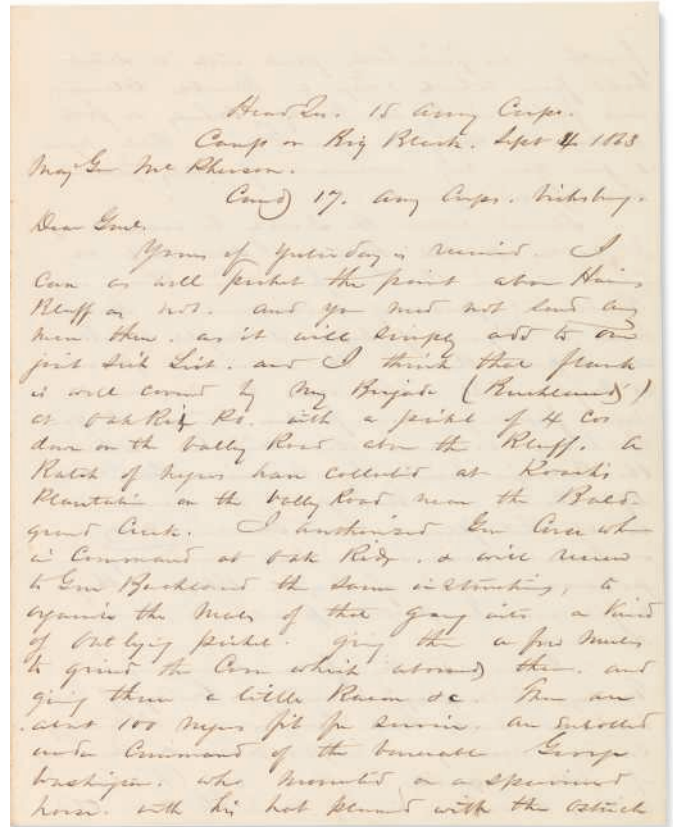 Head Qrs. 15 Army Corps.
Camp on Big Black. Sept 4 1863
Maj Gen McPherson.
Comd) 17. Army Corps. Vicksburg.
Dear Genl.
Yours of yesterday is received. I
can as well picket the point above Hains
Bluff as not. and you need not send any
men there. as it will simply add to our
joint Sick List. and I think that flank
is well covered by my Brigade (Bucklands)
at Oak Ridg Po. with a picket of 4 Cos
down on the Valley Road above the Bluff. A
Batch of negros have collected at Roachs
Plantation on the Valley Road near the Bald
ground Creek. I authorized Gen Corse when
in Command at Oak Ridge. & will renew
to Gen Buckland the same instructions, to
organize the males of that gang into a kind
of outlying picket. giving them a few mules
to grind the Corn which abounds there. and
giving them a little Bacon &c. There are
about 100 negros fit for service. are enrolled
under Command of the venerable George
Washington. who mounted on a spavined
horse. with his hat plumed with the ostrich